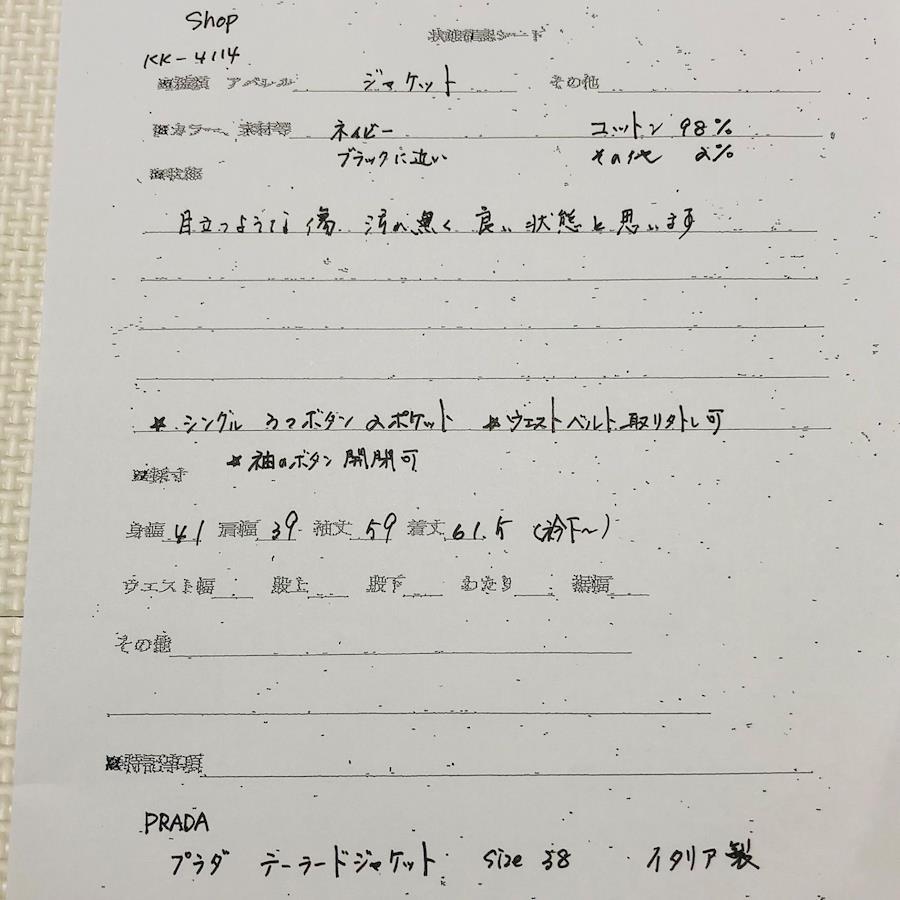 Shop
状態確認シート
KK-4114
■種類 アパレル ジャケット その他
■カラー、素材等 ネイビー コットン 98%
ブラックに近い その他 2%
■状態
目立つような傷、汚れ無く良い状態と思います
★シングル 3つボタン 2ポケット ★ウエストベルト取り外し可
★袖のボタン開閉可
■採寸
身幅 41 肩幅 39 袖丈 59 着丈 61.5 (衿下〜)
ウエスト幅 股上 股下 わたり 裾幅
その他
■特記事項
PRADA
プラダ テーラードジャケット size 38 イタリア製